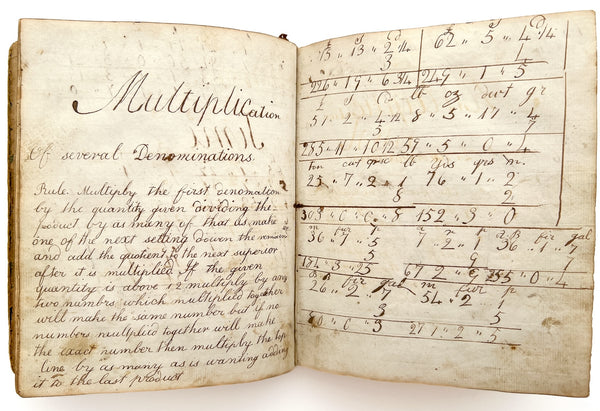 Multiplication
Of several Denominations
Rule. Multiply the first denomation
by the quantity given dividing the
product by as many of that as make
one of the next setting down the remainer
and add the quotient to the next superior
after it is multiplied If the given
quantity is above 12 multiply by any
two numbrs, which multiplied together
will make the same number but if no
numbers mulliplied together will make
the exact number then multiply the top
line by as many as is wanting adding
it to the last product
S d
75 " 13 " 2 1/4 62 " 5 " 4 1/4
3 4
226 " 19 " 6 3/4 249 " 1 " 5
£ S d lb oz dwt gr
57 " 2 " 4 1/2 8 " 5 " 17 " 4
5 7
285 " 11 " 10 1/2 59 " 5 " 0 " 4
ton cwt qrs lb yds qrs n.
25 " 7 " 2 " 1 76 " 1 " 2
2
303 " 0 " 0 " 8 152 " 3 " 0
m fur p
36 " 7 " 5 " 2 " 1 36 " 7 " 7
fir gal
5 7
184 " 3 " 25 67 2
fir gal m fur p
26 " 2 " 7 54 " 2 " 1
3 5
80 " 0 " 3 271 " 2 " 5